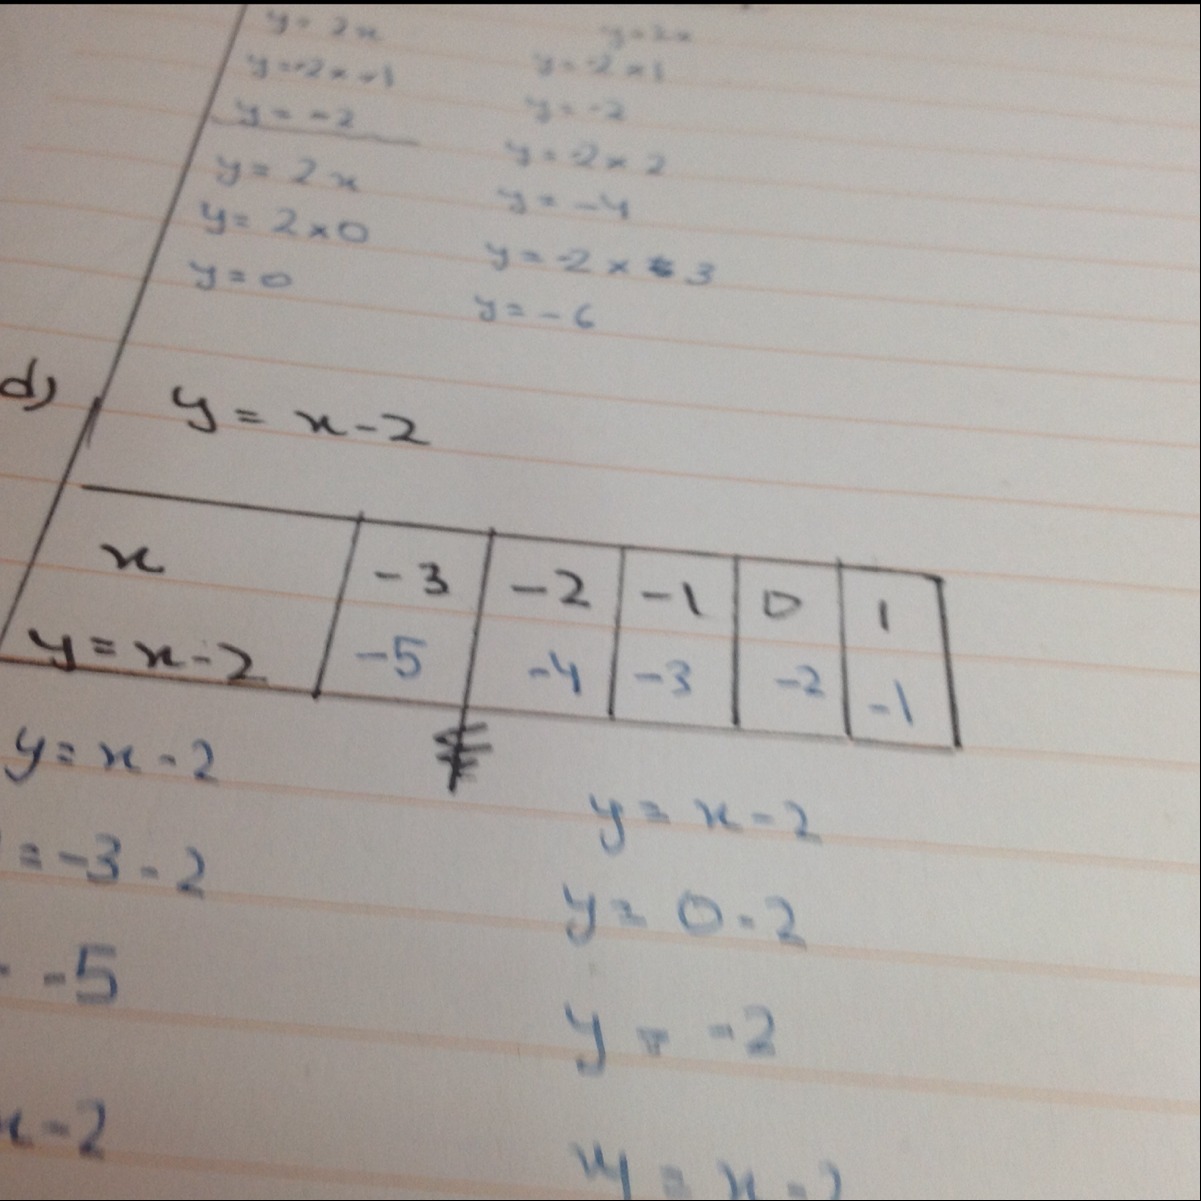 y = 2x
y = 2x
y = -2 x 1
y = -2 x 1
y = -2
y = -2
y = 2x
y = -2 x 2
y = 2 x 0
y = -4
y = 0
y = -2 x 3
y = -6
d) y = x - 2
x -3 -2 -1 0 1
y = x - 2 -5 -4 -3 -2 -1
y = x - 2
y = x - 2
= -3 - 2
y = 0 - 2
-5
y = -2
x - 2
y = x - 2